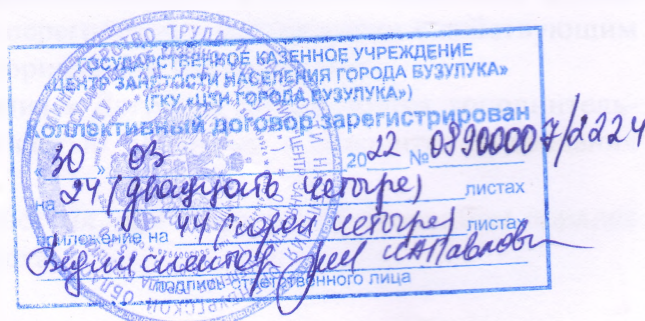 ГОСУДАРСТВЕННОЕ КАЗЕННОЕ УЧРЕЖДЕНИЕ
«ЦЕНТР ЗАНЯТОСТИ НАСЕЛЕНИЯ ГОРОДА БУЗУЛУКА»
(ГКУ «ЦЗН ГОРОДА БУЗУЛУКА»)
Коллективный договор зарегистрирован
«30» 03 2022 № 08900007/2224
на 24 (двадцать четыре) листах
приложение на 44 (сорок четыре) листах
Вед. инспектор
подпись ответственного лица